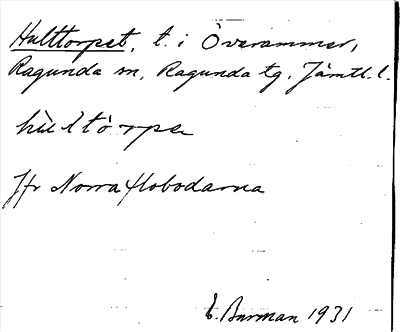 Hulttorpet, t. i Överammer,
Ragunda sn, Ragunda tg. Jämtl. l.
hùltòrpe
Jfr Norra Flobodarna
E. Burman 1931